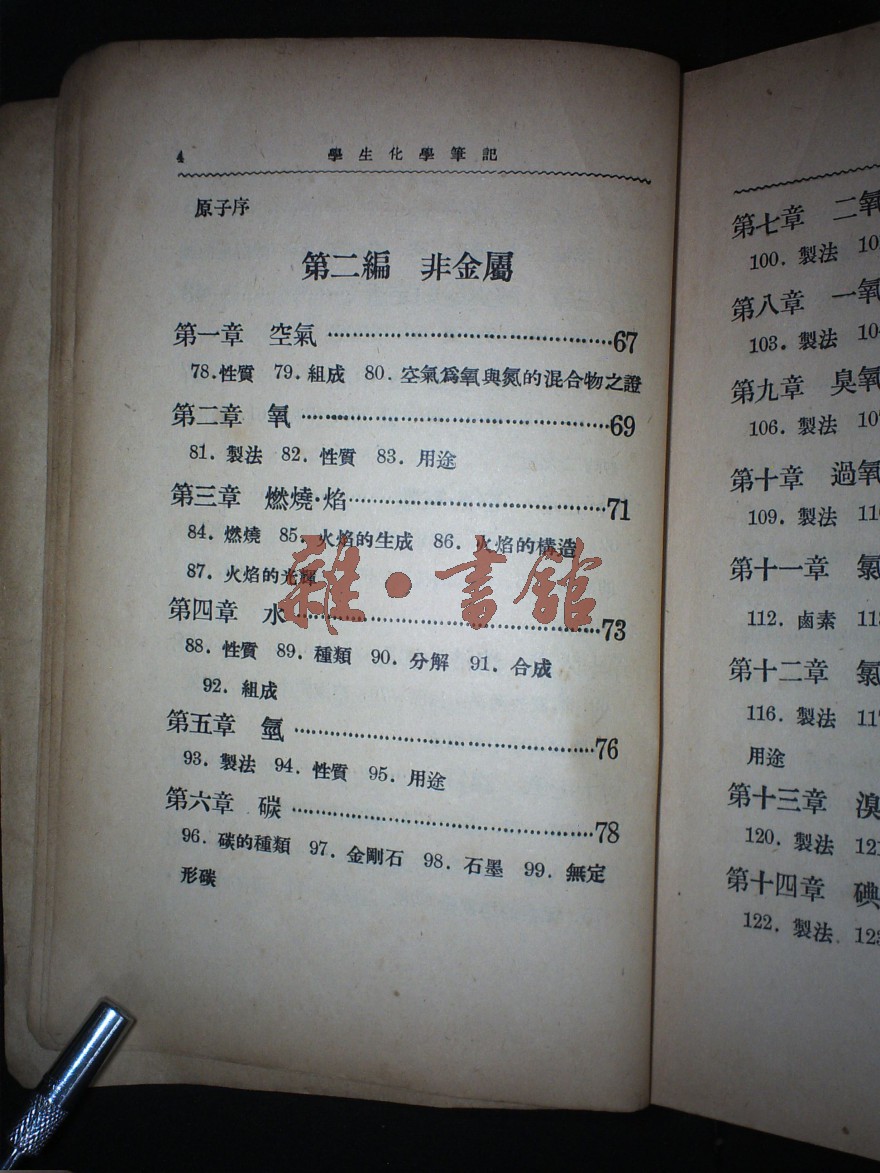 4 學生化學筆記
原子序
第二編 非金屬
第一章 空氣 ……………………………………67
78.性質 79.組成 80.空氣爲氧與氮的混合物之證
第二章 氧 ……………………………………69
81.製法 82.性質 83.用途
第三章 燃燒·焰……………………………………71
84.燃燒 85.火焰的生成 86.火焰的構造
87.火焰的光輝
雜·書館
第四章 水 ……………………………………73
88.性質 89.種類 90.分解 91.合成
92.組成
第五章 氫 ……………………………………76
93.製法 94.性質 95.用途
第六章 碳 ……………………………………78
96.碳的種類 97.金剛石 98.石墨 99.無定
形碳
第七章 二氧
100.製法
第八章 一氧
103.製法
第九章 臭氧
106.製法
第十章 過氧
109.製法
第十一章 氯
112.鹵素
第十二章 氯
116.製法
用途
第十三章 溴
120.製法 121
第十四章 碘
122.製法 123